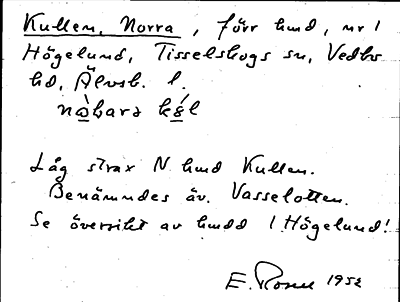 Kullen, Norra, förr hmd, nr 1
Högelund, Tisselskogs sn, Vedbo
hd, Älvsb. l.
nòbarə kél
Låg strax N hmd Kullen.
Benämndes äv. Vasselotten.
Se översikt av hmdd 1 Högelund!
E. Rosen 1952